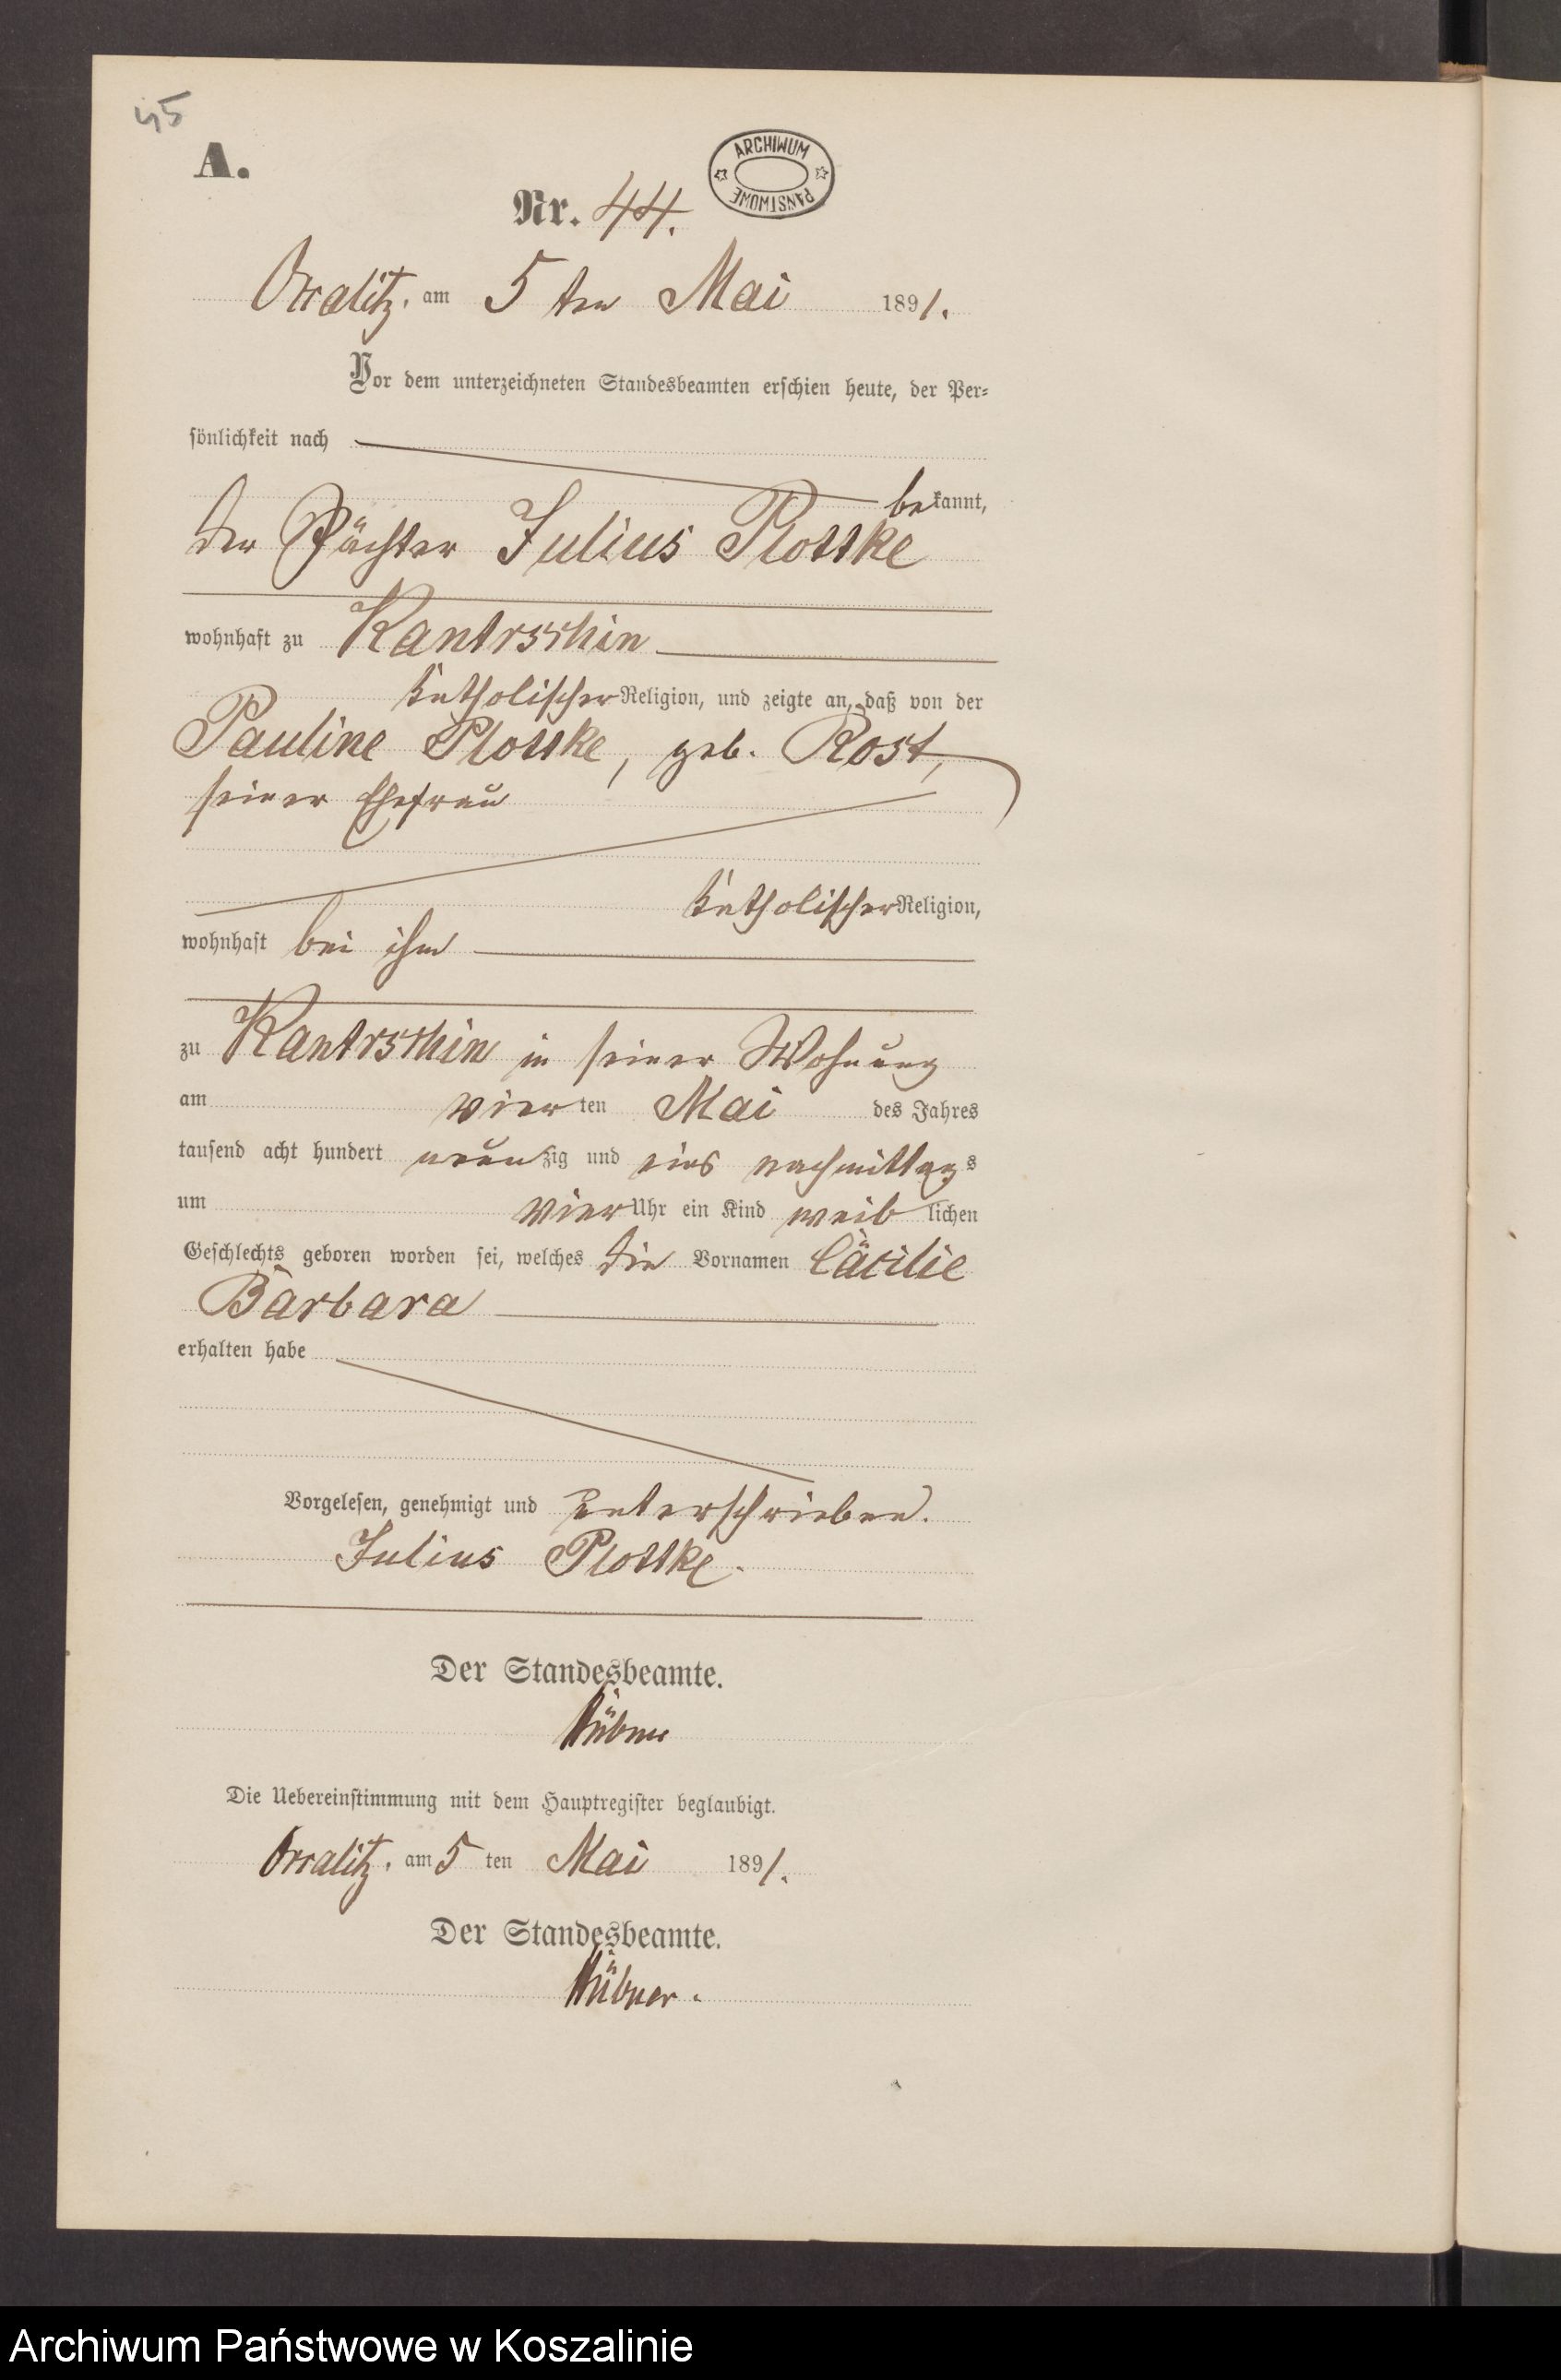 45
A.
ARCHIWUM PAŃSTWOWE
Nr. 44.
am 5 ten Mai 1891.
Vor dem unterzeichneten Standesbeamten erschien heute, der Per-
sönlichkeit nach
bekannt,
der Pächter Julius
wohnhaft zu
katholischer Religion, und zeigte an, daß von der
Pauline geb. Rost,
seiner Ehefrau
katholischer Religion,
wohnhaft bei ihm
zu in seiner Wohnung
am vierten Mai des Jahres
tausend acht hundert neunzig und eins nachmittags
um vier Uhr ein Kind weiblichen
Geschlechts geboren worden sei, welches die Vornamen Cäcilie
Barbara
erhalten habe
Vorgelesen, genehmigt und unterschrieben.
Julius
Der Standesbeamte.
Hübner
Die Uebereinstimmung mit dem Hauptregister beglaubigt.
am 5 ten Mai 1891.
Der Standesbeamte.
Hübner.
Archiwum Państwowe w Koszalinie